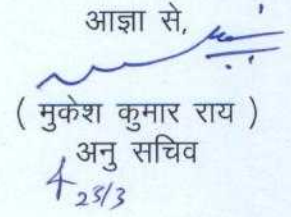 आज्ञा से,
( मुकेश कुमार राय )
अनु सचिव
23/3